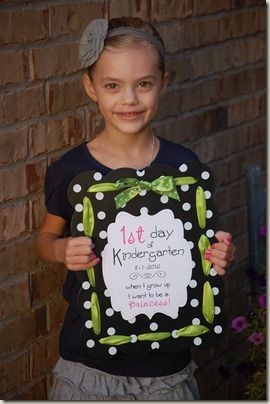 1st day
of
Kindergarten
8-1-2012
when I grow up
I want to be a
Princess!